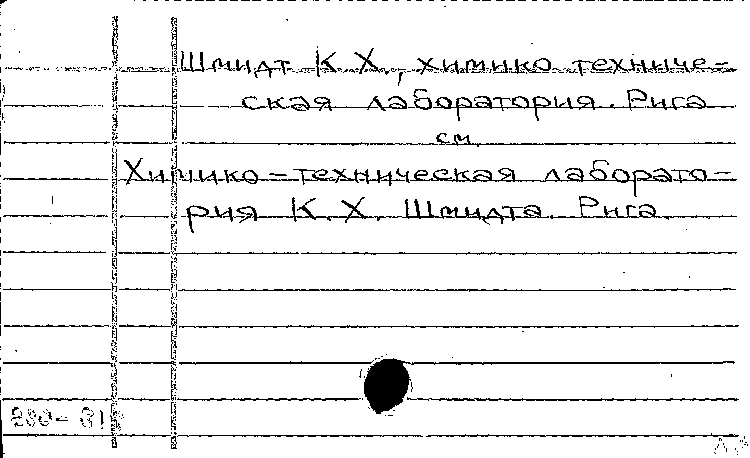 Шмидт К. Х., химико техниче=
ская лаборатория. Рига
см.
Химико=техническая лаборато=
рия К. Х. Шмидта. Рига.